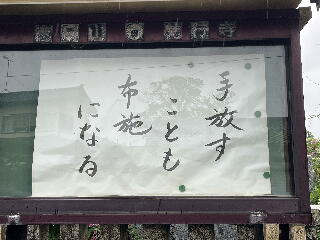 手放す
ことも
布施
になる